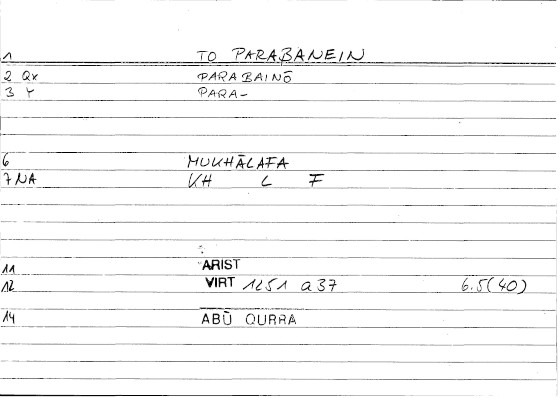 1 TO PARABANEIN
2 Qx PARABAINŌ
3 Y PARA-
6 MUKHĀLAFA
7 NA KH L F
11 ARIST
12 VIRT 1251 a 37 6.5(40)
14 ABŪ QURRA